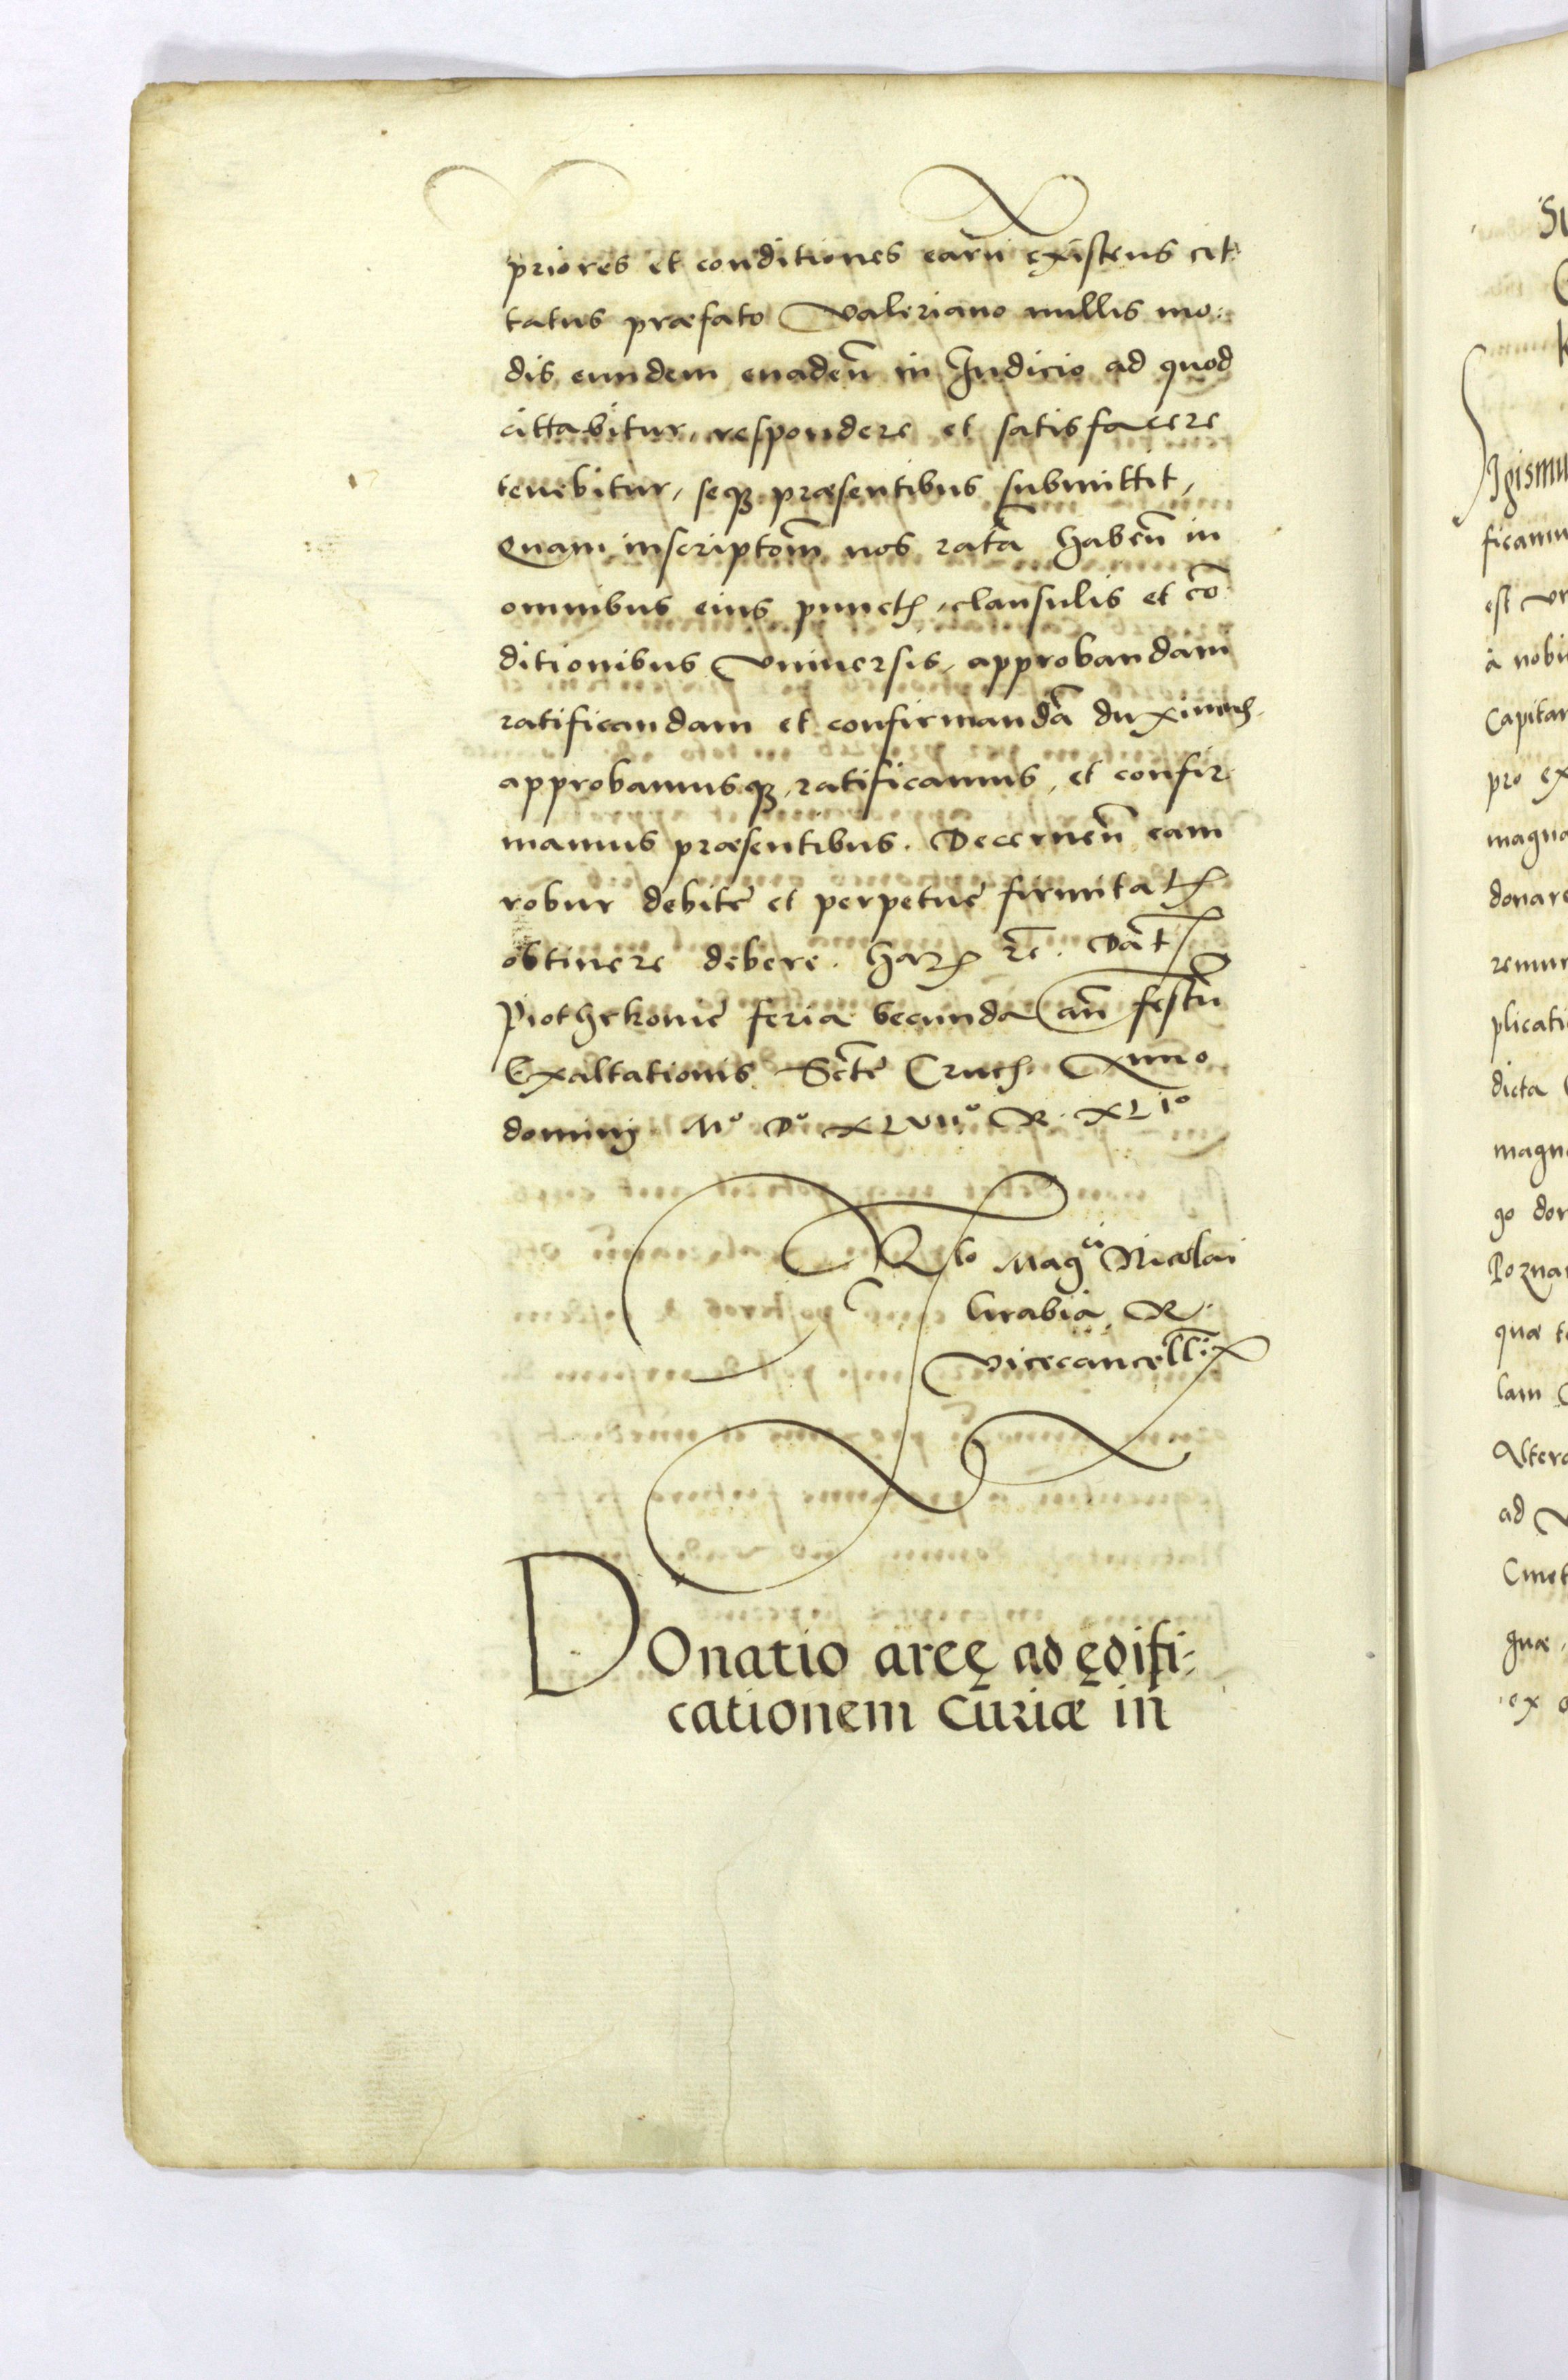 priores et conditiones earū existens cit
tatus præfato Valeriano nullis mo-
dis eundem euadeñ in Iudicio ad quod
cittabitur, respondere et satisfacere
tenebitur, seqꝫ præsentibus submittit,
Quam inscriptoēm nos ratā habeñ in
omnibus eius punctꝭ, clausulis et cō
ditionibus vniuersis, approbandam
ratificandam et confirmandā duximꝰ
approbamusqꝫ, ratificamus, et confir
mamus præsentibus. Decerneñ eam
robur debitę et perpetuę firmitatꝭ
obtinere debere. Harꝭ rē. Datꝭ
Piothrkouię feria secunda añ festū
Exaltationis Sctę Crucꝭ Anno
dominj Mº Dº XLVIIº R. XLIº
Rlo Magci Nicolai
Grabia R.
vicecancellꝭ
DOnatio areę ad ędifi-
cationem curiæ in
Su
k
Sigismu
ficamu
est vn
à nobi
Capitan
pro ex
magna
donare
remun
plicati
dicta
magn
go don
Pozna
quæ t
lam
Altera
ad
Cmet
guæ,
ex